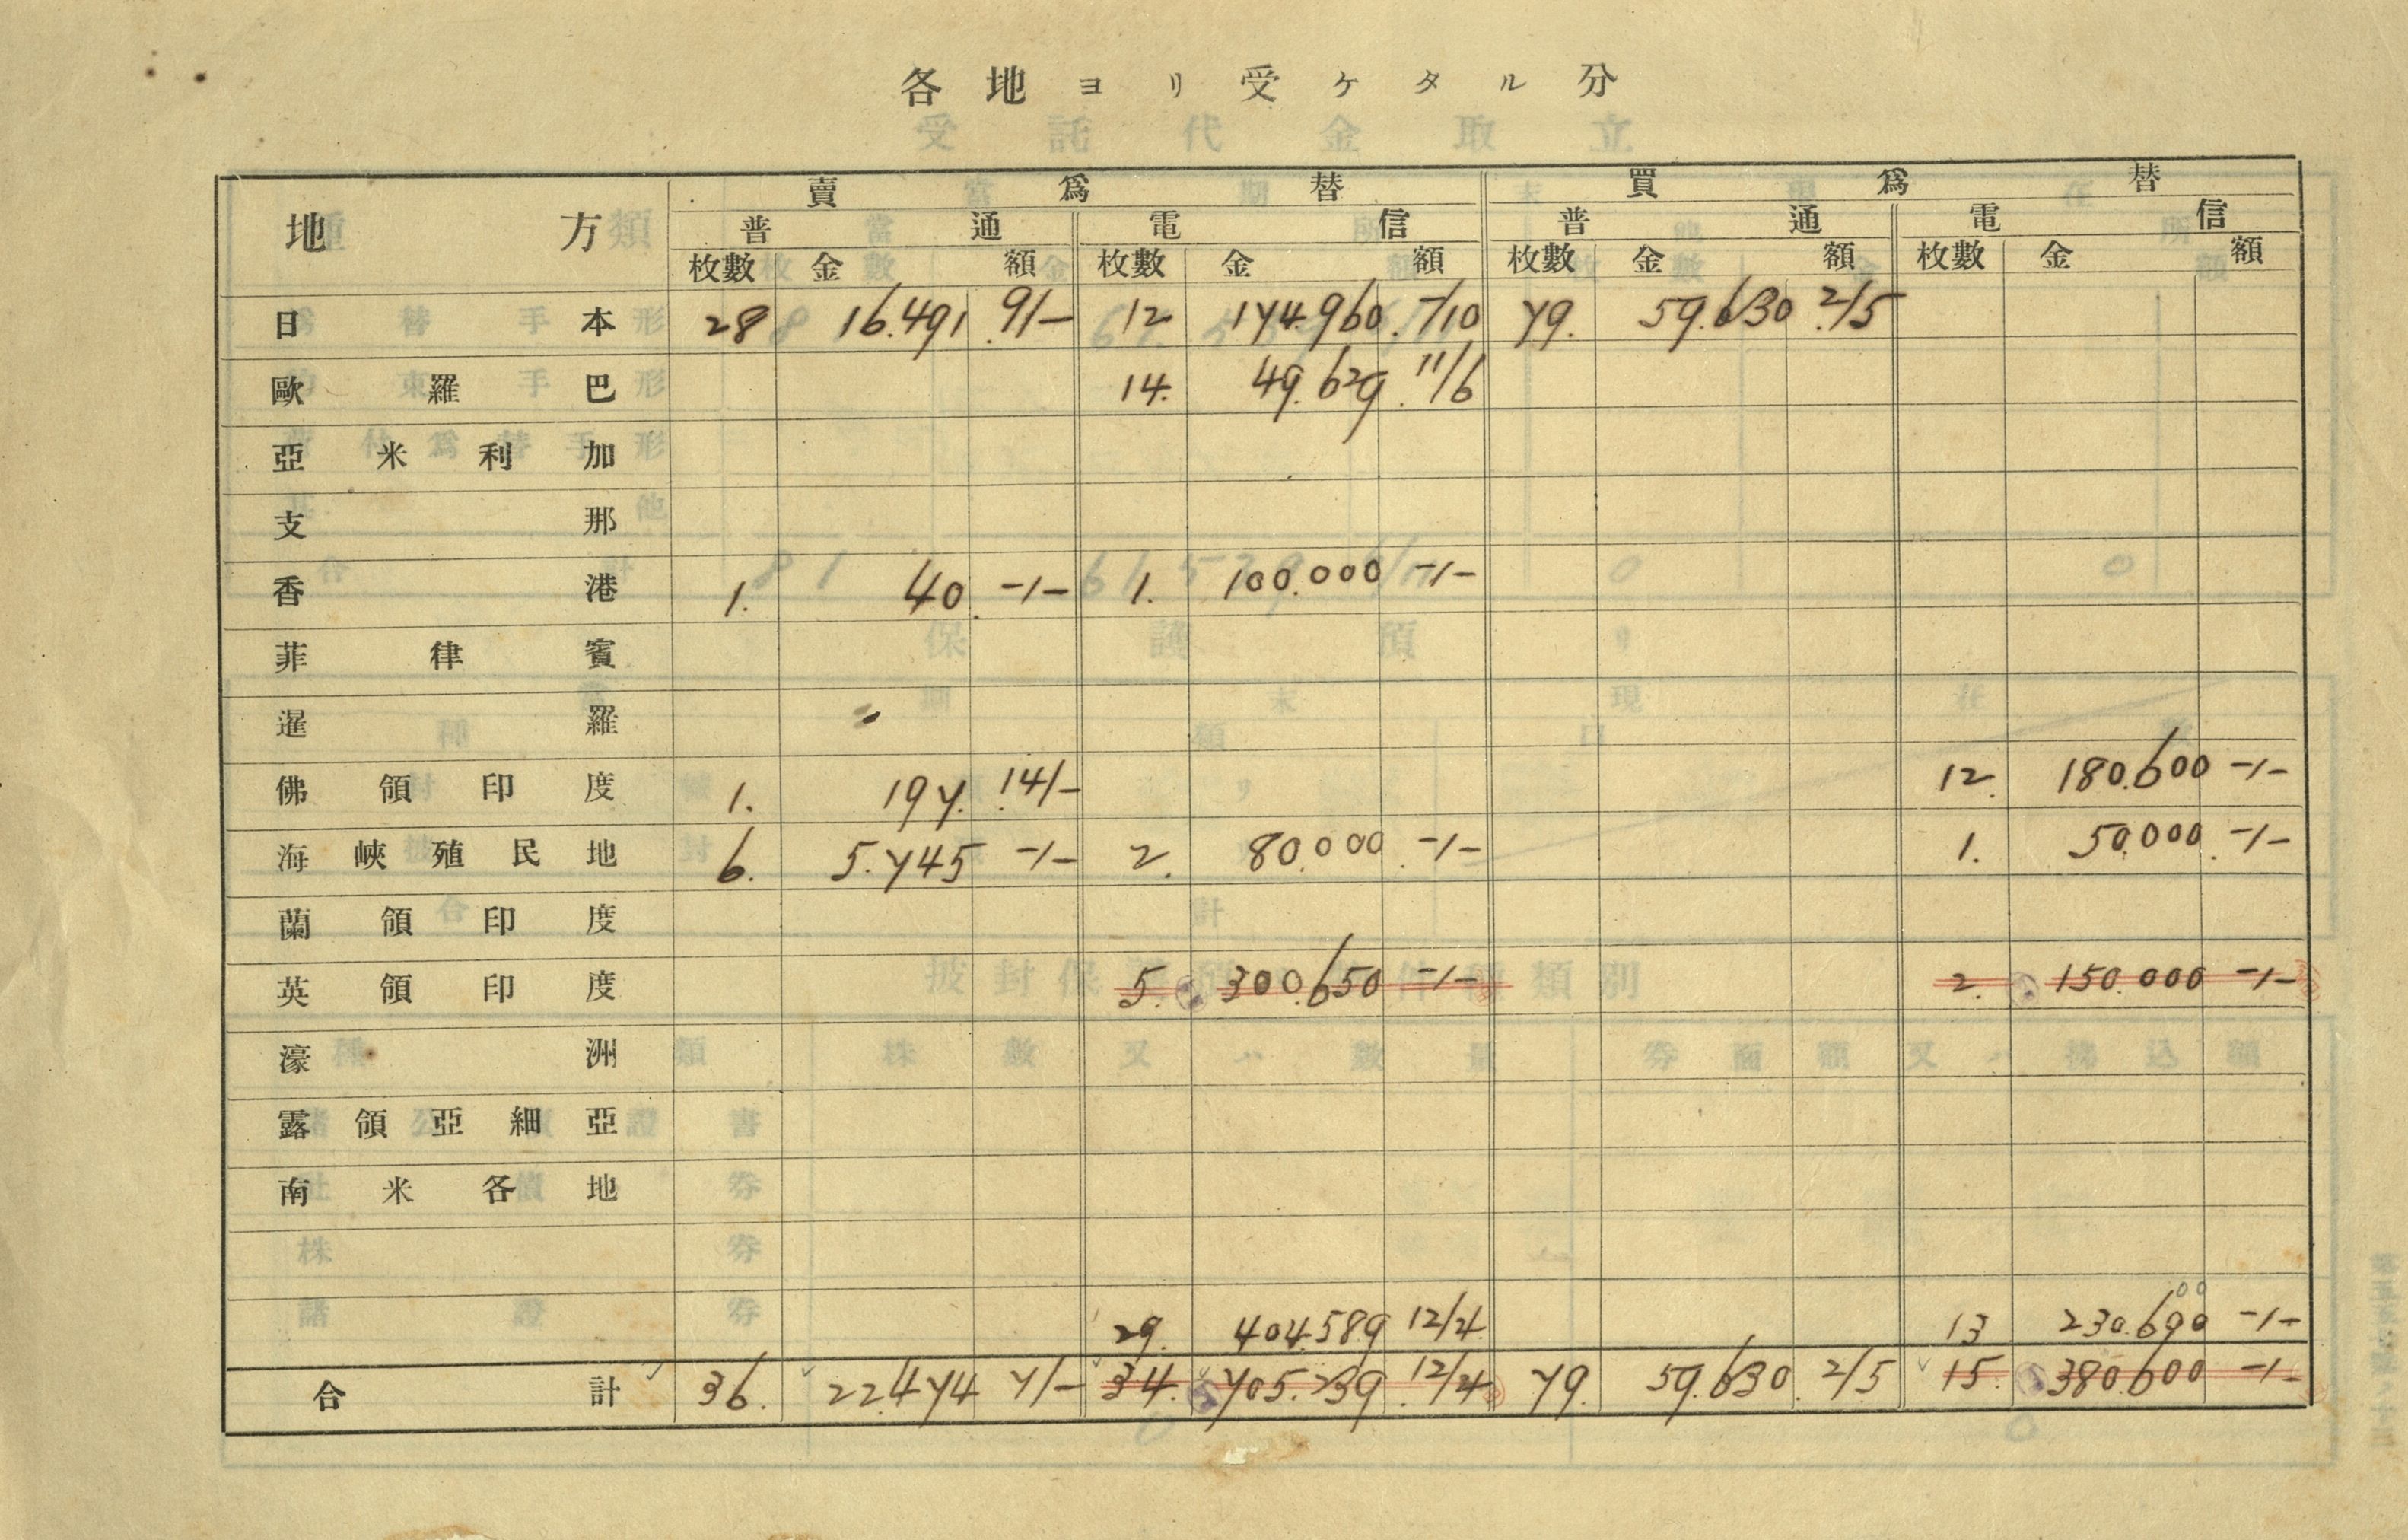 各地ヨリ受ケタル分
地方 賣爲替 買爲替
普通 電信 普通 電信
枚數 金額 枚數 金額 枚數 金額 枚數 金額
日本 28 16.491 9/- 12 174.960 -/10 79. 59.630 2/5
歐羅巴 14. 49.629 11/6
亞米利加
支那
香港 1. 40 -/- 1. 100.000 -/-
菲律賓
暹羅
佛領印度 1. 197. 14/- 12. 180.600 -/-
海峽殖民地 6. 5.745 -/- 2. 80.000 -/- 1. 50.000 -/-
蘭領印度
英領印度 5. 300.650 -/- 2. 150.000 -/-
濠洲
露領亞細亞
南米各地
29. 404.589 12/4 13 230.600 -/-
合計 36. 22.474 7/- 34. 705.239 12/4 79. 59.630 2/5 15. 380.600 -/-